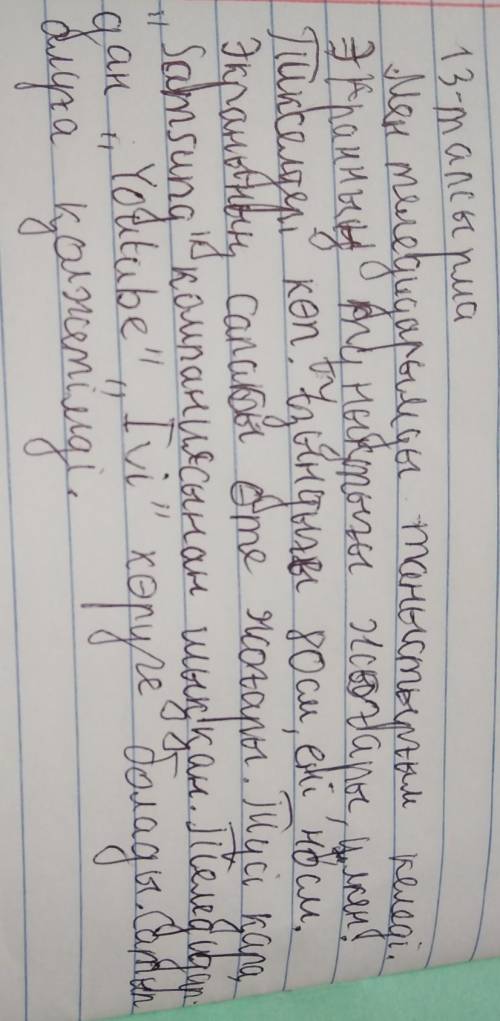 13-тапсырма
Мен теледидарымды таныстырғым келеді.
Экранның қунықтығы жоғары, үлкен.
Пиксельдері көп. Ұзындығы 80см, ені 40см.
Экранының сапасы өте жоғары. Түсі қара,
"Samsung" компаниясынан шыққан. Теледидар-
дан "Yoututube" "Ivi" көруге болады. Сатып
алуға қолжетімді.